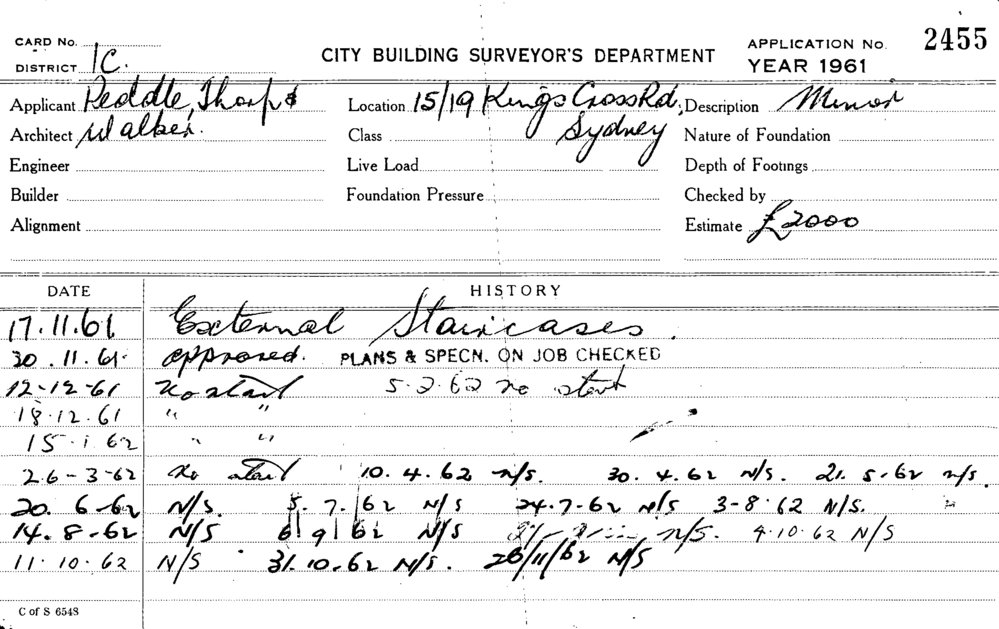 CARD No.
CITY BUILDING SURVEYOR'S DEPARTMENT
APPLICATION No. 2455
DISTRICT 1C.
YEAR 1961
Applicant Peddle, Thorp &
Location 15/19 Kings Cross Rd,
Description Minor
Architect Walker.
Class Sydney
Nature of Foundation
Engineer
Live Load
Depth of Footings
Builder
Foundation Pressure
Checked by
Alignment
Estimate £2000
DATE HISTORY
17.11.61 External Staircases.
30.11.61. approved. PLANS & SPECN. ON JOB CHECKED
12-12-61 No start 5.2.62 no start
18.12.61 " "
15.1.62 " "
26-3-62 no start 10.4.62 n/s. 30.4.62 N/S. 21.5.62 n/s.
20.6-62 N/S. 5.7.62 N/S 24.7-62 N/S 3-8.62 N/S.
14.8-62 N/S 6/9/62 N/S n/s. 4.10.62 N/S
11.10.62 N/S 31.10.62 N/S. 26/11/62 N/S
C of S 6548